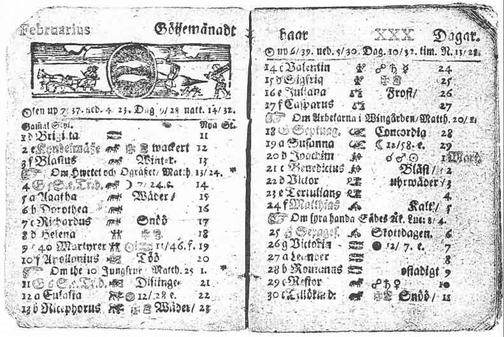 Februarius Göijemånadt
Osen up 7/37. ned. 4. 23. Dag 9/28 natt. 14/32.
Gamal Styl. Nya St.
1 d Brigita 11
2 e Kyndelmässe wackert 12
3 f Blasius Winter. 13
Om Hwetet och Ogräset/ Matth. 13/24.
4 G 5 e. Tr.d. 7/24. e. 14
5 a Agatha Wäder/ 15
6 b Dorothea 16
7 c Richardus Snöö 17
8 d Helena 18
9 e 40 Martyrer 11/46. f. 19
10 f Apollonius Töö 20
Om the 10 Jungfrur Matth. 25 1.
11 G 6 e. Tr.d. Distinge. 21
12 a Eulalia 12/28 e. 22
13 b Nicephorus Wäder/ 23
haar XXX Dagar.
up 6/39. ned. 5/30. Dag. 10/32. tim. N. 13/28.
14 c Valentin 24
15 d Sigfrid 25
16 e Juliana Frost/ 26
17 f Caiparus 27
Om Arbetarna i Wingården/ Matth. 20/1.
18 G Septuag. Concordia 28
19 a Susanna 12/58. e. 29
20 b Joachim 1 Mart.
21 c Benedictus Blåst/ 2
22 d Victor uhrwäder/ 3
23 e Tertuliang 4
24 f Matthias Kalt/ 5
Om fyrahanda Sädes åk. Luc. 8/4.
25 G Sexages. Skottdagen. 6
26 g Victoria 12/7. e. 7
27 a Leander 8
28 b Romanus ostadigt 9
29 c Nestor 10
30 c Snöö/ 11